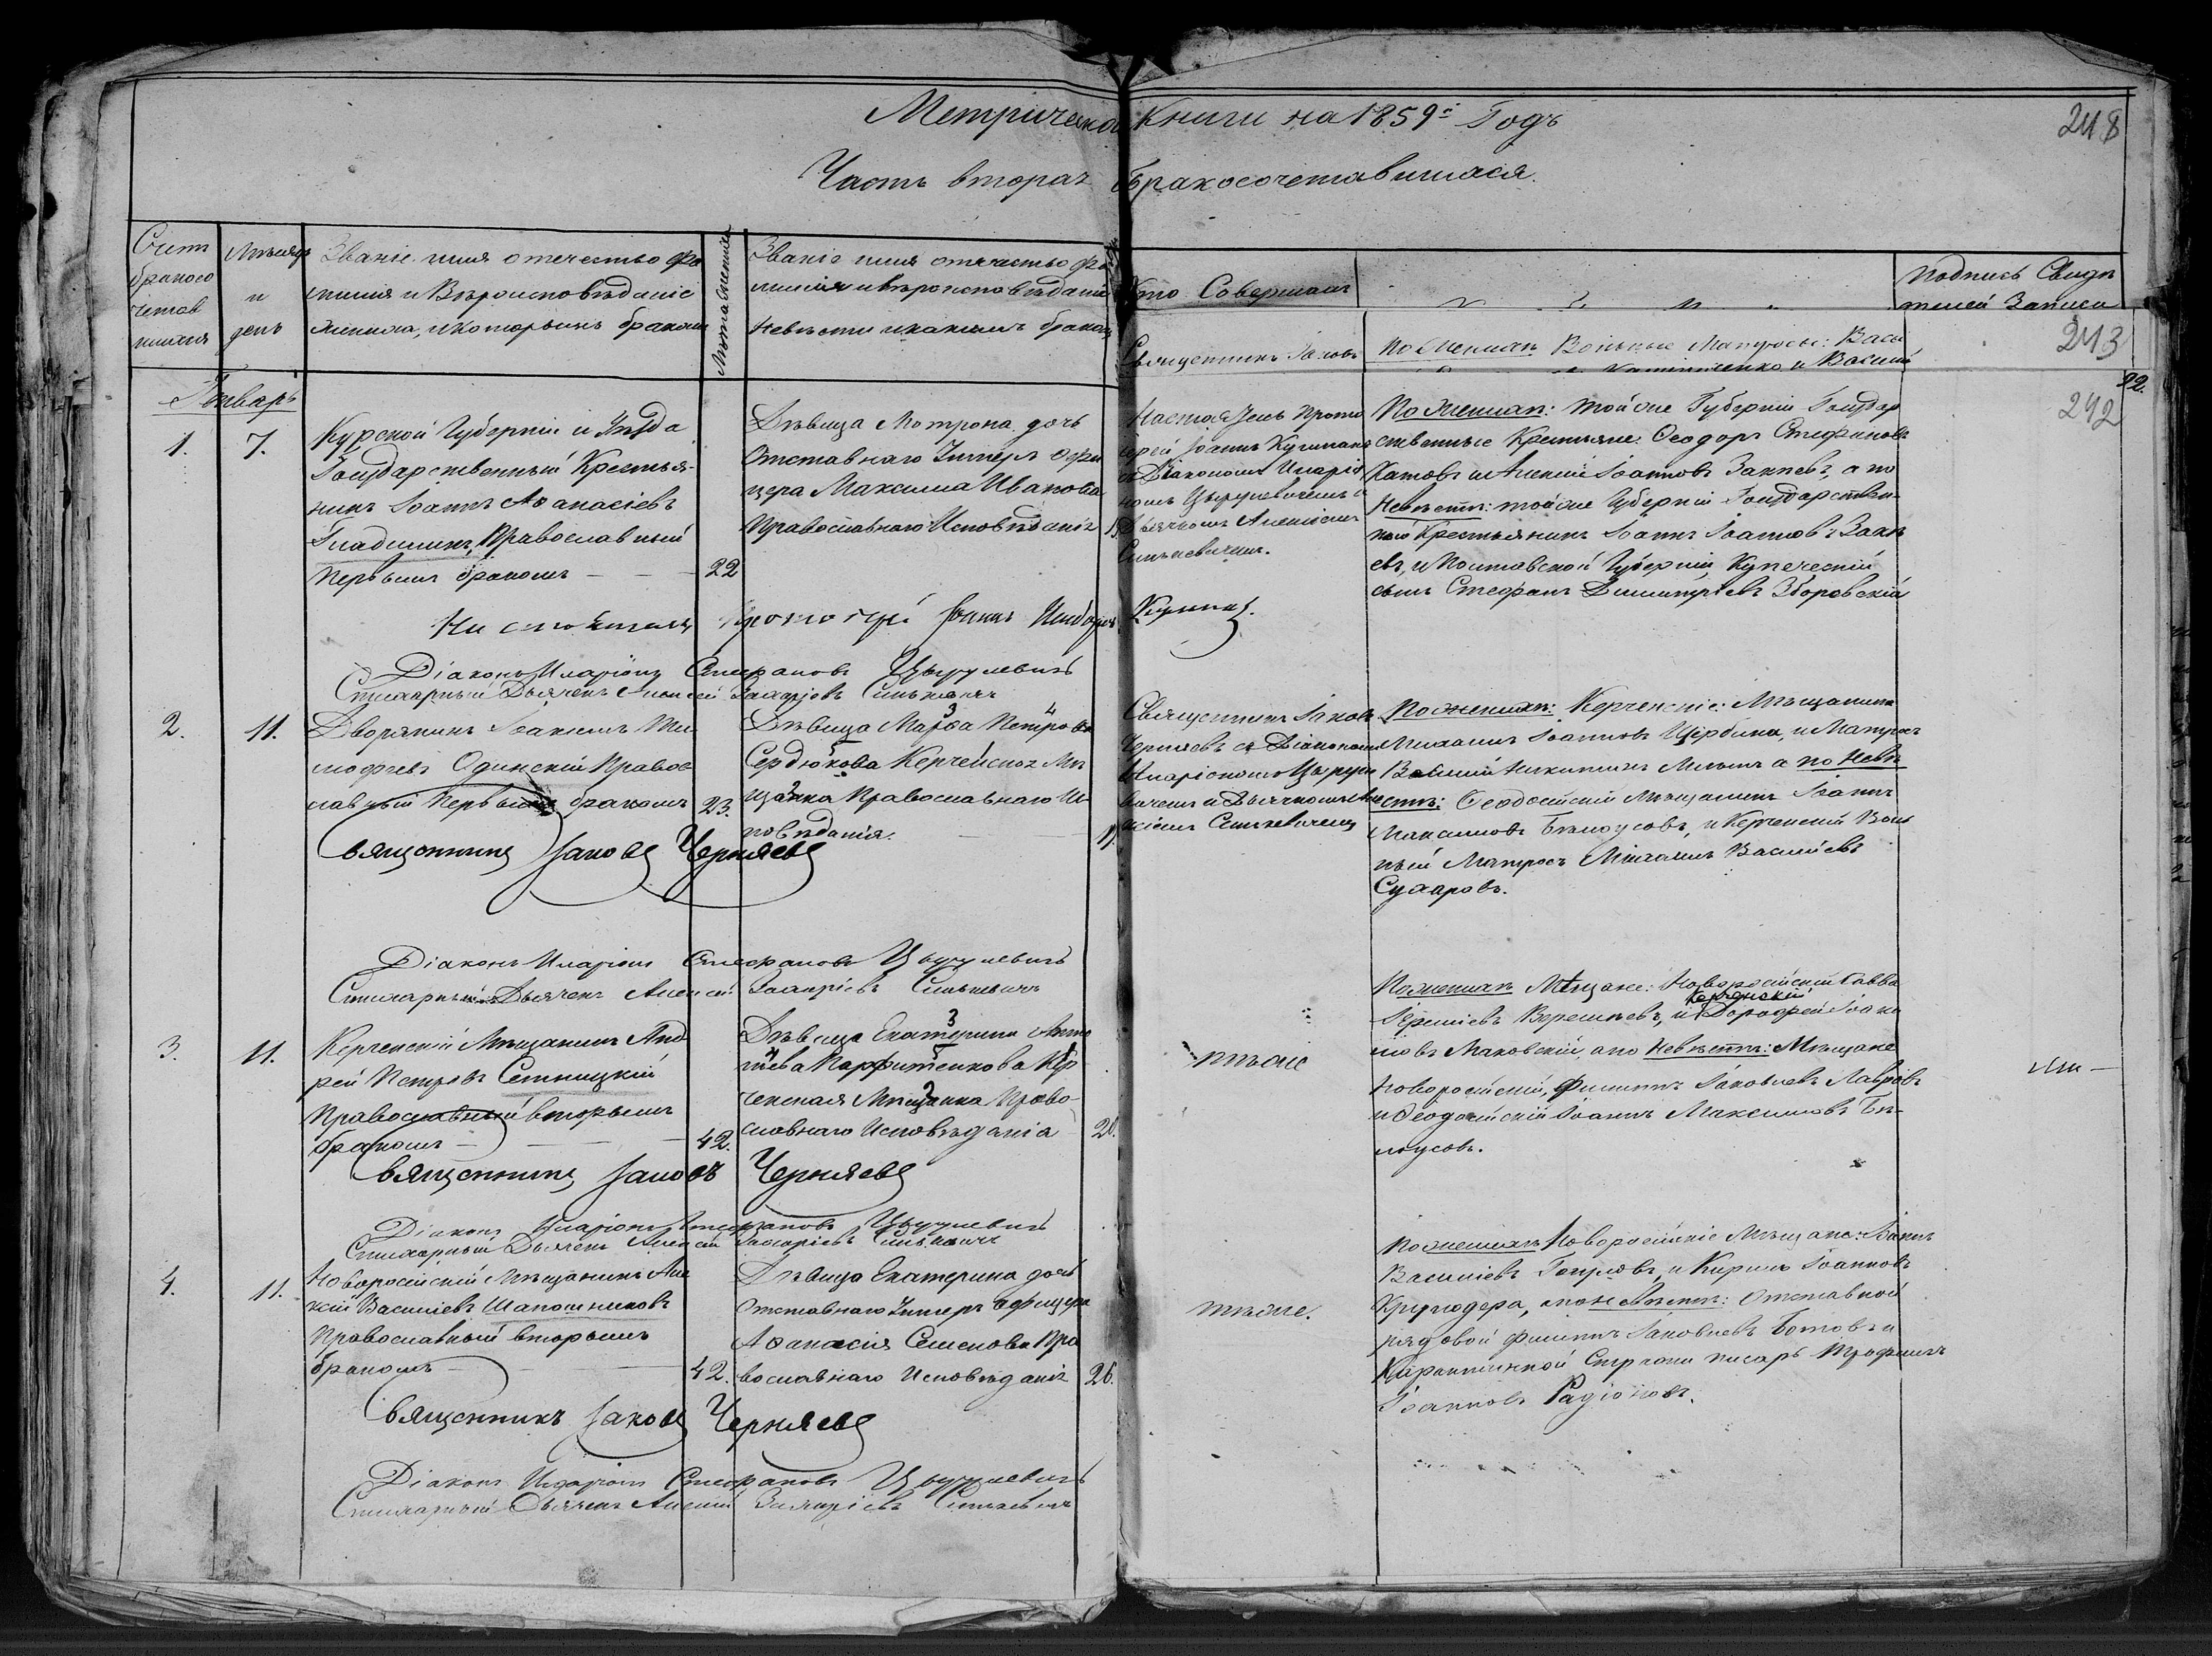 Метрической Книги на 1859й Годъ
248
Часть вторая Бракосочетавшіася.
Счетъ
бракосо
четав
шихся
Мѣсяцъ
и
день
Званіе имя отечество фа
милія и Вѣроисповѣданіе
жениха, и которымъ бракомъ
Лѣта жениха
Званіе имя отчество фа
милія и вѣроисповѣданіе
Невѣсты и какимъ бракомъ
Кто Совершалъ
Подпись Свидѣ
телей Записи
Священникъ Іаковъ
По Женихѣ Вольные Матросы: Васи
и Василій
243
Январь
22.
242
1.
7.
Курской Губерніи и Уѣзда
Государственный Крестья-
нинъ Іоаннъ Аѳанасіевъ
Гладилинъ, Православный
первымъ бракомъ
22
Дѣвица Мотрона дочь
Отставнаго Унтеръ офи
цера Максима Иванова
Православнаго Исповѣданія
Настоятель Прото
іерей Іоаннъ
съ Діакономъ Иларіо
номъ Цырулевичемъ и
Дьячкомъ Алексіемъ
Синькевичемъ.
По Женихѣ: той же Губерніи Государ
ственные Крестьяне: Ѳеодоръ Стефановъ
Катовъ и Алексій Іоанновъ Закпевъ, а по
Невѣстѣ: той же Губерніи Государствен
ной Крестьянинъ Іоаннъ Іоанновъ Закп
евъ, и Полтавской Губерніи Купеческій
сынъ Стефанъ Димитріевъ Зборовскій
Настоятель Протоіерей Іоаннъ
Діаконъ Иларіонъ Стефановъ Цырулевичъ
Стихарный Дьячекъ Алексей Захаріевъ Синькевичъ
2.
11.
Дворянинъ Іоакимъ Ти
мофеевъ Одинскій Правос
лавный первымъ бракомъ
23.
Дѣвица Марѳа Петрова
Сердюкова Керченская Мѣ
щанка Православнаго Ис
повѣданія.
Священникъ Іаковъ
Черняевъ съ Діакономъ
Иларіономъ Цырули
вичемъ и Дьячкомъ Але
ксіемъ Синькевичемъ
По женихѣ: Керченскіе: Мѣщанинъ
Михаилъ Іоанновъ Щербина, и Матросъ
Василій Никитинъ Мильтъ а по Невѣ
стѣ: Ѳеодосійскій Мѣщанинъ Іоаннъ
Максимовъ Бѣлоусовъ, и Керченскій Воль
ный Матросъ Михаилъ Василіевъ
Сухаровъ.
Священникъ Іаковъ Черняевъ
Діаконъ Иларіонъ Стефановъ Цырулевичъ
Стихарный Дьячекъ Алексей Захаріевъ Синькевичъ
3.
11.
Керченскій Мѣщанинъ Анд
рей Петровъ Сетницкій
Православный вторымъ
бракомъ
42.
Дѣвица Екатерина Анто
нѣева Парфитенкова Кер
ченская Мѣщанка Право-
славнаго Исповѣданія
20.
тѣже
По женихѣ Мѣщане: Новоросійскій Савва
Керченскій
Еремѣевъ Веремѣевъ, и Дорофей Іоакі
мовъ Маковскій, а по Невѣстѣ: Мѣщане
Новоросійскій, Филиппъ Іаковлевъ Лавровъ
и Ѳеодосійскій Іоаннъ Максимовъ Бѣ-
лоусовъ.
Священникъ Іаковъ Черняевъ
Діаконъ Иларіонъ Стефановъ Цырулевичъ
Стихарный Дьячекъ Алексей Захаріевъ Синькевичъ
4.
11.
Новоросійскій Мѣщанинъ Але
ксій Василіевъ Шапошниковъ
Православный вторымъ
бракомъ
42.
Дѣвица Екатерина дочь
Отставнаго Унтеръ офицера
Аѳанасія Семенова Пра
вославнаго Исповѣданія
26.
тѣже.
По женихѣ Новоросійскіе Мѣщане: Іоаннъ
Василіевъ Гопуловъ, и Кирилъ Іоанновъ
Круподера, а по Невѣстѣ: Отставной
рядовой Филиппъ Іаковлевъ Ботовъ и
Карантинной Стражи писарь Трофимъ
Іоанновъ Радіоновъ.
Священникъ Іаковъ Черняевъ
Діаконъ Иларіонъ Стефановъ Цырулевичъ
Стихарный Дьячекъ Алексей Захаріевъ Синькевичъ